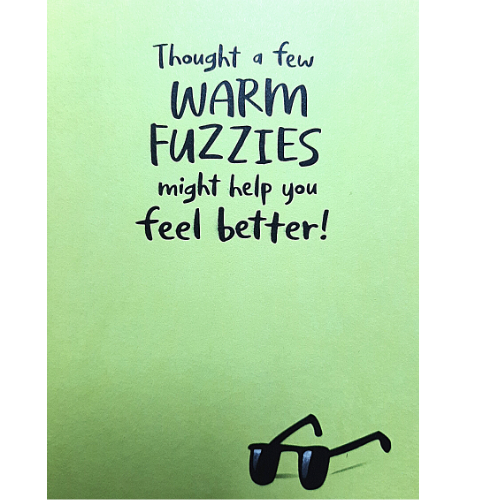 Thought a few
WARM
FUZZIES
might help you
feel better!